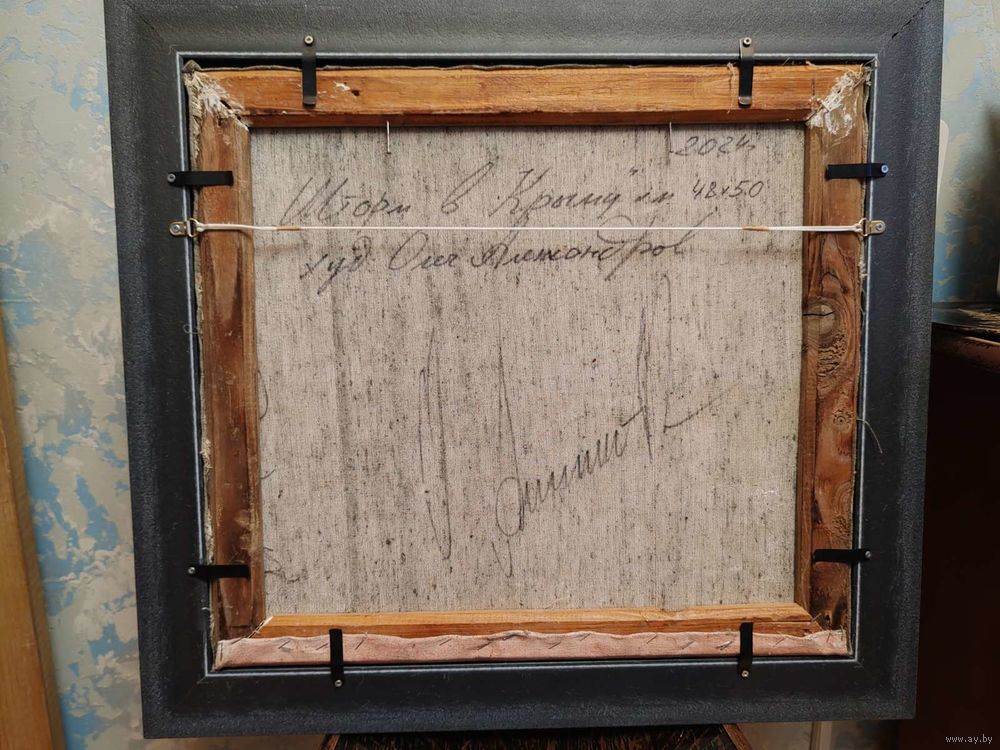 2024г
Шторм в Крыму" хм 48х50
худ Олег Александров
www.ay.by